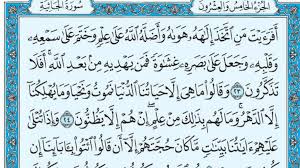 الجزء الخامس والعشرون سورة الجاثية
أَفَرَءَيْتَ مَنِ ٱتَّخَذَ إِلَٰهَهُۥ هَوَىٰهُ وَأَضَلَّهُ ٱللَّهُ عَلَىٰ عِلْمٍ وَخَتَمَ عَلَىٰ سَمْعِهِۦ
وَقَلْبِهِۦ وَجَعَلَ عَلَىٰ بَصَرِهِۦ غِشَٰوَةً فَمَن يَهْدِيهِ مِنۢ بَعْدِ ٱللَّهِ أَفَلَا
تَذَكَّرُونَ ٢٣ وَقَالُوا۟ مَا هِىَ إِلَّا حَيَاتُنَا ٱلدُّنْيَا نَمُوتُ وَنَحْيَا وَمَا يُهْلِكُنَآ
إِلَّا ٱلدَّهْرُ وَمَا لَهُم بِذَٰلِكَ مِنْ عِلْمٍ إِنْ هُمْ إِلَّا يَظُنُّونَ ٢٤ وَإِذَا تُتْلَىٰ
عَلَيْهِمْ ءَايَٰتُنَا بَيِّنَٰتٍ مَّا كَانَ حُجَّتَهُمْ إِلَّآ أَن قَالُوا۟ ٱئْتُوا۟ بِـَٔابَآئِنَآ